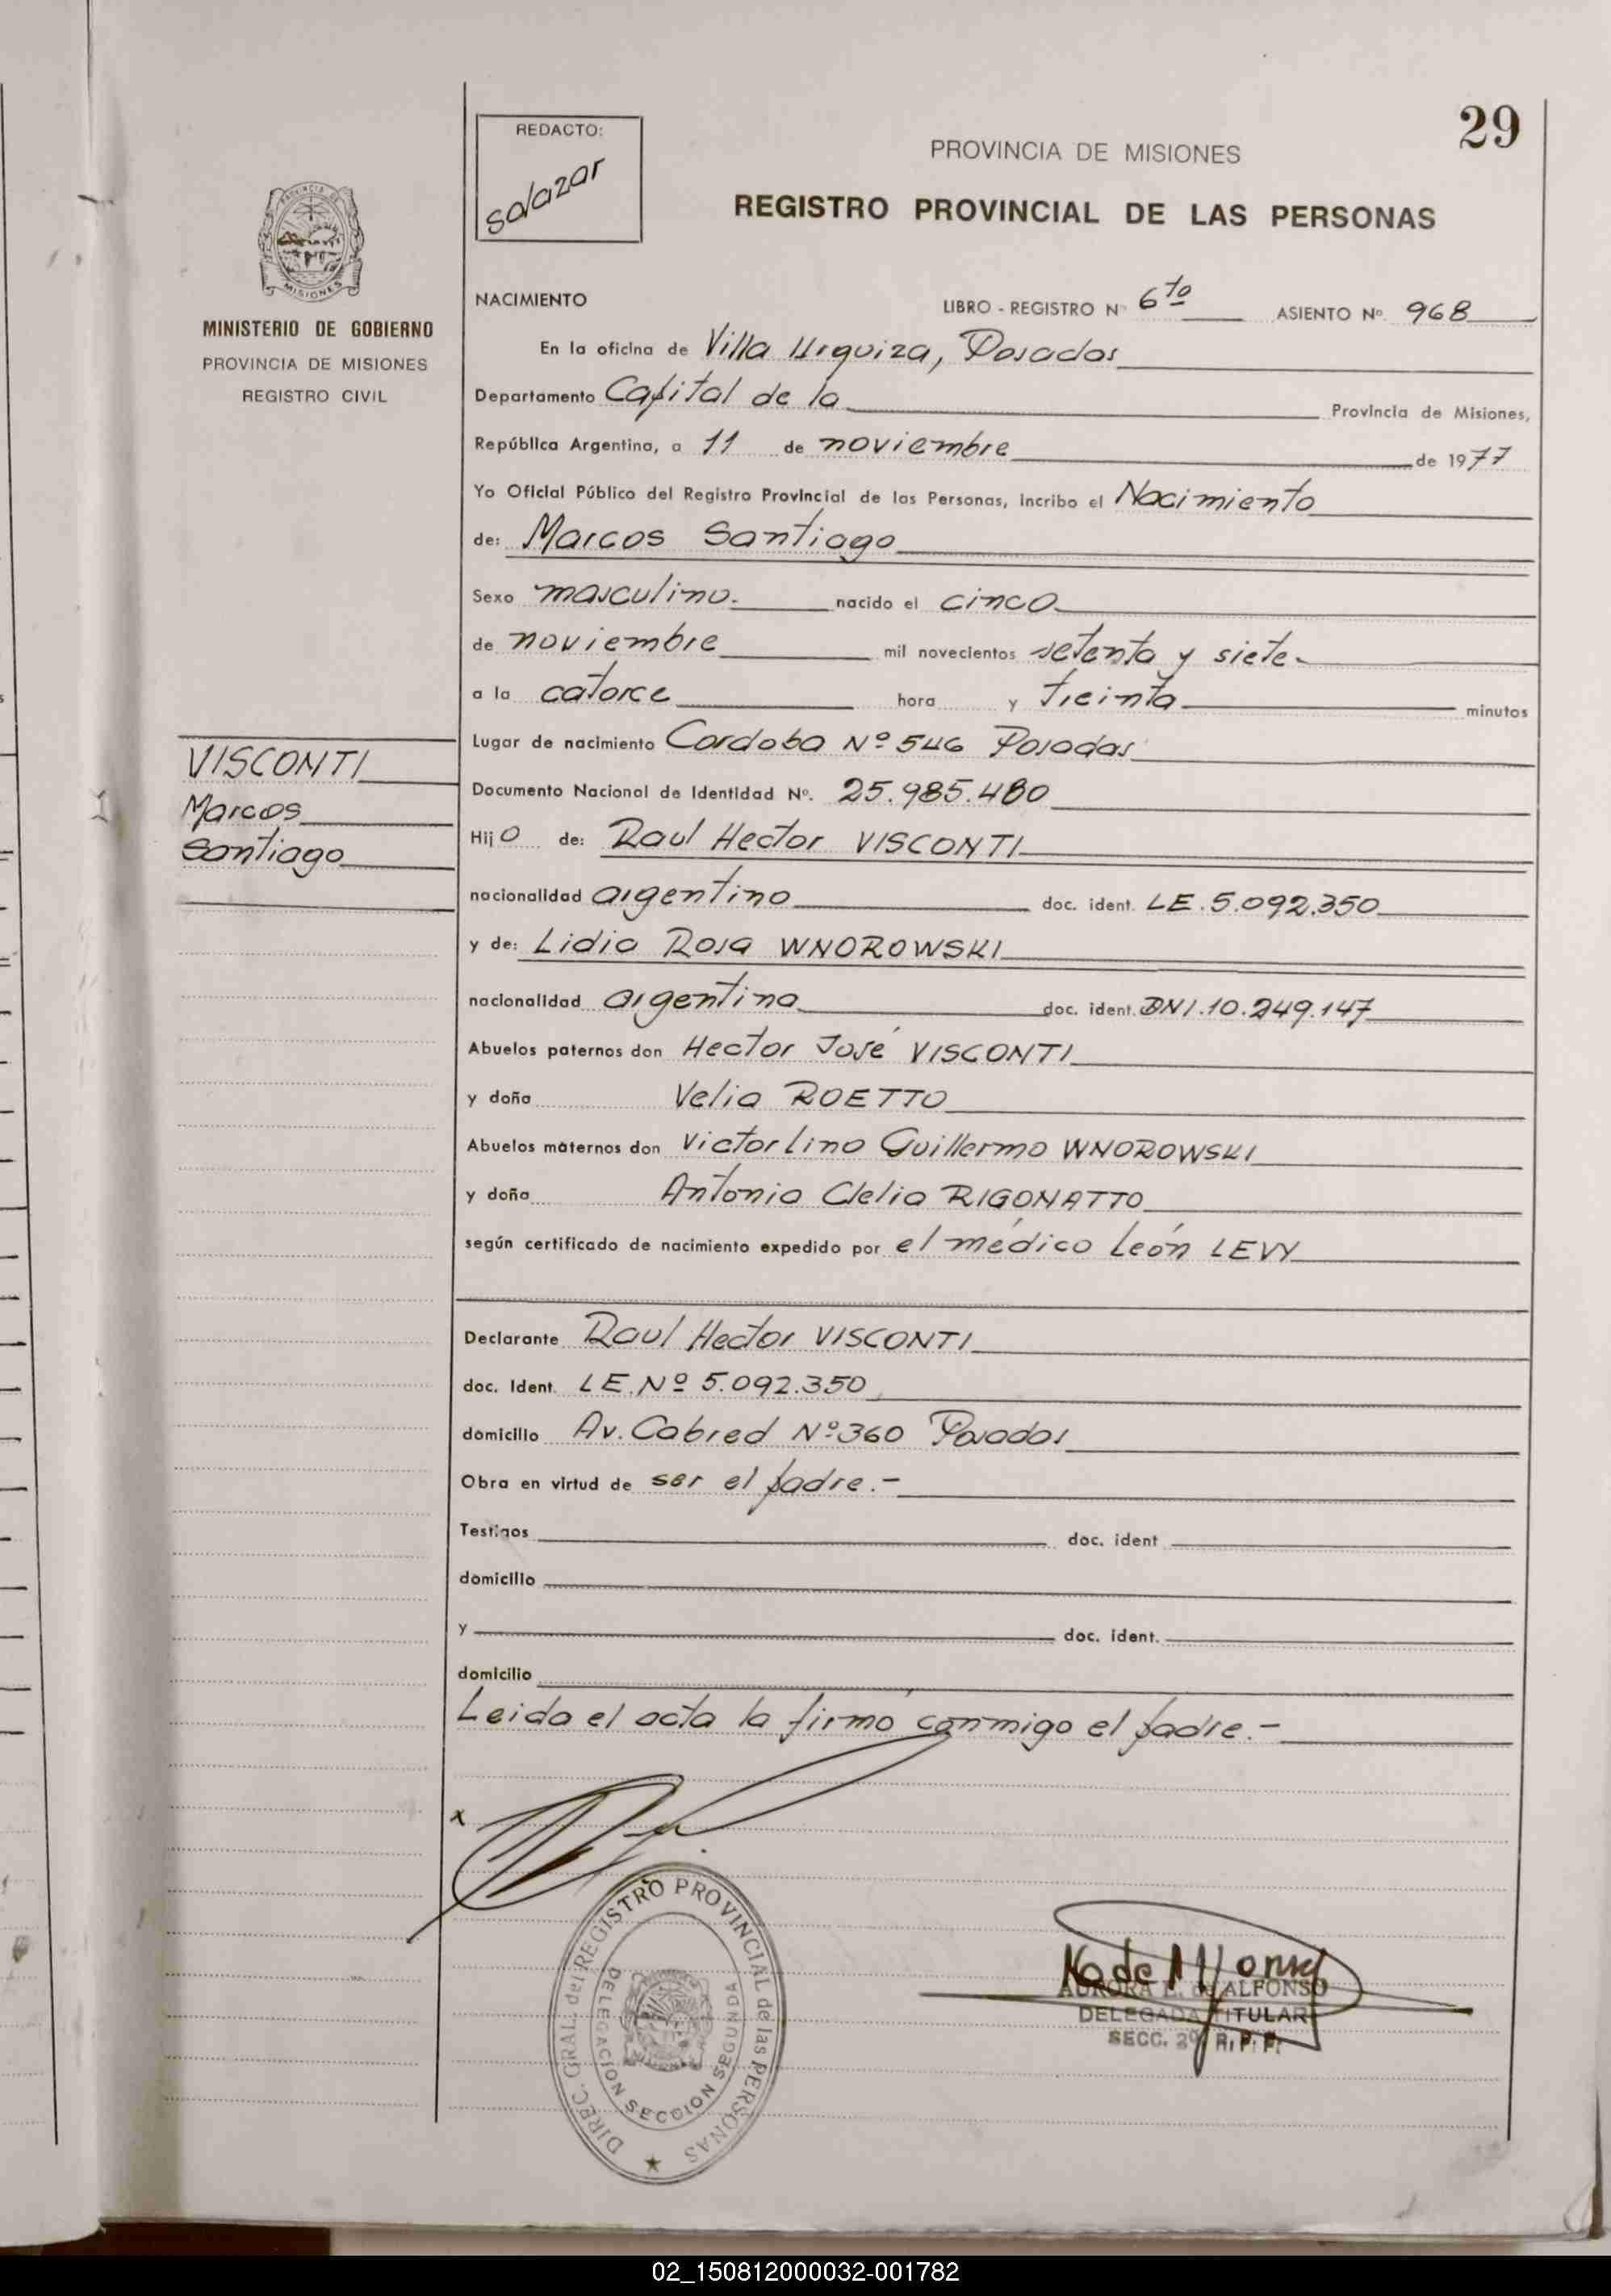 29
REDACTO:
Salazar
PROVINCIA DE MISIONES
REGISTRO PROVINCIAL DE LAS PERSONAS
MISIONES
MINISTERIO DE GOBIERNO
PROVINCIA DE MISIONES
REGISTRO CIVIL
NACIMIENTO LIBRO - REGISTRO Nº 6to ASIENTO Nº 968
En la oficina de Villa Urquiza, Posadas
Departamento Capital de la Provincia de Misiones,
República Argentina, a 11 de noviembre de 1977
Yo Oficial Público del Registro Provincial de las Personas, incribo el Nacimiento
de: Marcos Santiago
Sexo masculino. nacido el cinco
de noviembre mil novecientos setenta y siete.
a la catorce hora y treinta minutos
VISCONTI
Marcos
Santiago
Lugar de nacimiento Cordoba Nº 546 Posadas
Documento Nacional de Identidad Nº. 25.985.480
Hijo de: Raul Hector VISCONTI
nacionalidad argentino doc. ident. LE.5.092.350
y de: Lidia Rosa WNOROWSKI
nacionalidad argentina doc. ident. DNI.10.249.147
Abuelos paternos don Hector José VISCONTI
y doña Velia ROETTO
Abuelos maternos don Victor lino Guillermo WNOROWSKI
y doña Antonia Clelia RIGONATTO
según certificado de nacimiento expedido por el médico León LEVY
Declarante Raul Hector VISCONTI
doc. Ident. LE.Nº 5.092.350
domicilio Av. Cabred Nº 360 Posadas
Obra en virtud de ser el padre.-
Testigos doc. ident
domicilio
y doc. ident.
domicilio
Leida el acta la firmó conmigo el padre.-
x
DIREC. GRAL. del REGISTRO PROVINCIAL de las PERSONAS
DELEGACION SECCION SEGUNDA
AURORA de ALFONSO
DELEGADA TITULAR
SECC. 2º R.P.P.
02_150812000032-001782